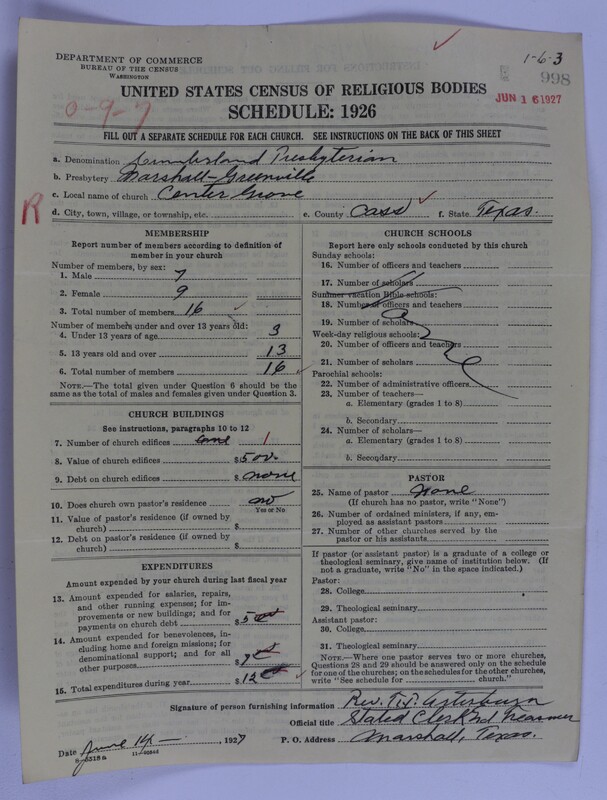 1-6-3
DEPARTMENT OF COMMERCE
BUREAU OF THE CENSUS
WASHINGTON
998
UNITED STATES CENSUS OF RELIGIOUS BODIES
JUN 16 1927
SCHEDULE: 1926
0-9-7
FILL OUT A SEPARATE SCHEDULE FOR EACH CHURCH. SEE INSTRUCTIONS ON THE BACK OF THIS SHEET
a. Denomination Cumberland Presbyterian
b. Presbytery Marshall-Greenville
c. Local name of church Center Grove
R
d. City, town, village, or township, etc. e. County Cass f. State Texas.
MEMBERSHIP
Report number of members according to definition of
member in your church
Number of members, by sex:
1. Male 7
2. Female 9
3. Total number of members 16
Number of members under and over 13 years old:
4. Under 13 years of age 3
5. 13 years old and over 13
6. Total number of members 16
NOTE.—The total given under Question 6 should be the
same as the total of males and females given under Question 3.
CHURCH BUILDINGS
See instructions, paragraphs 10 to 12
7. Number of church edifices one 1
8. Value of church edifices $500.
9. Debt on church edifices $none
10. Does church own pastor's residence no
Yes or No
11. Value of pastor's residence (if owned by
church) $
12. Debt on pastor's residence (if owned by
church) $
EXPENDITURES
Amount expended by your church during last fiscal year
13. Amount expended for salaries, repairs,
and other running expenses; for im-
provements or new buildings; and for
payments on church debt $5
14. Amount expended for benevolences, in-
cluding home and foreign missions; for
denominational support; and for all
other purposes $7
15. Total expenditures during year $12
CHURCH SCHOOLS
Report here only schools conducted by this church
Sunday schools:
16. Number of officers and teachers
17. Number of scholars
Summer vacation Bible schools:
18. Number of officers and teachers
19. Number of scholars
Week-day religious schools:
20. Number of officers and teachers
21. Number of scholars
Parochial schools:
22. Number of administrative officers
23. Number of teachers—
a. Elementary (grades 1 to 8)
b. Secondary
24. Number of scholars—
a. Elementary (grades 1 to 8)
b. Secondary
PASTOR
25. Name of pastor None
(If church has no pastor, write "None")
26. Number of ordained ministers, if any, em-
ployed as assistant pastors
27. Number of other churches served by the
pastor or his assistants
If pastor (or assistant pastor) is a graduate of a college or
theological seminary, give name of institution below. (If
not a graduate, write "No" in the space indicated.)
Pastor:
28. College
29. Theological seminary
Assistant pastor:
30. College
31. Theological seminary
NOTE.—Where one pastor serves two or more churches,
Questions 28 and 29 should be answered only on the schedule
for one of the churches; on the schedules for the other churches,
write "See schedule for church."
Signature of person furnishing information Rev. T. J. Arterburn
Official title Stated Clerk
Date June 14— 1927 P. O. Address Marshall, Texas.
8-5318a